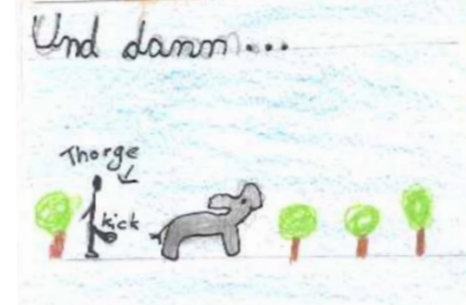 Und dann...
Thorge
kick